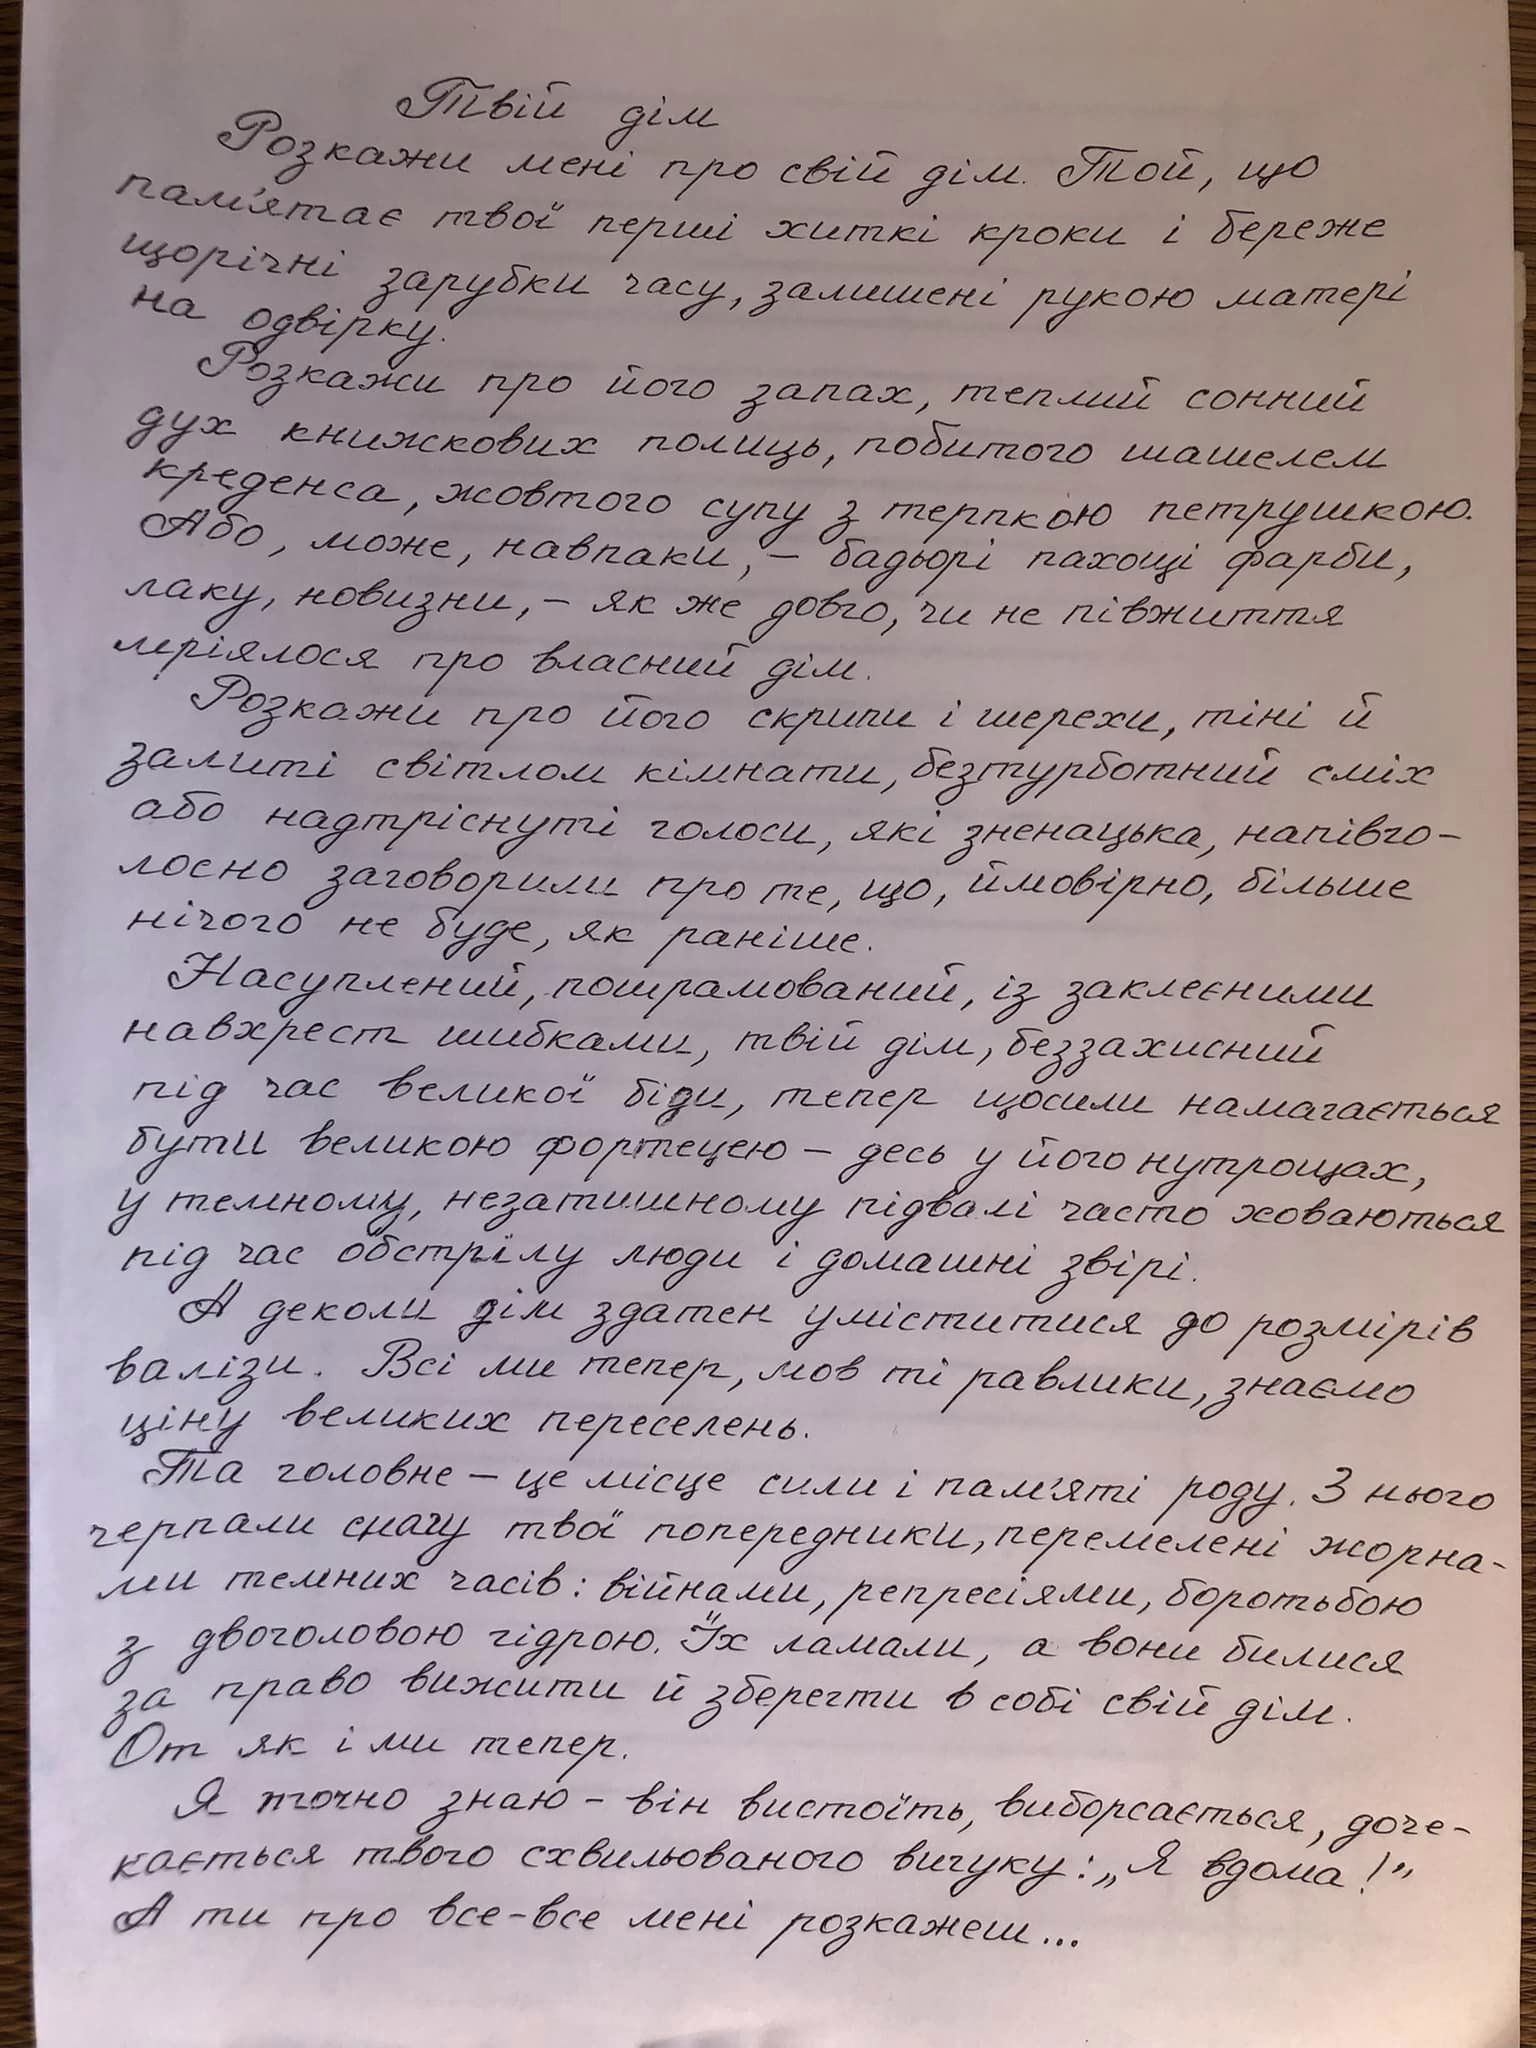 Твій дім
Розкажи мені про свій дім. Той, що
пам'ятає твої перші хиткі кроки і береже
щорічні зарубки часу, залишені рукою матері
на одвірку.
Розкажи про його запах, теплий сонний
дух книжкових полиць, побитого шашелем
креденса, жовтого супу з терпкою петрушкою.
Або, може, навпаки, – бадьорі пахощі фарби,
лаку, новизни, – як же довго, чи не півжиття
мріялося про власний дім.
Розкажи про його скрипи і шерехи, тіні й
залиті світлом кімнати, безтурботний сміх
або надтріснуті голоси, які зненацька, напівго-
лосно заговорили про те, що, ймовірно, більше
нічого не буде, як раніше.
Насуплений, пошрамований, із заклеєними
навхрест шибками, твій дім, беззахисний
під час великої біди, тепер щосили намагається
бути великою фортецею – десь у його нутрощах,
у темному, незатишному підвалі часто ховаються
під час обстрілу люди і домашні звірі.
А деколи дім здатен уміститися до розмірів
валізи. Всі ми тепер, мов ті равлики, знаємо
ціну великих переселень.
Та головне – це місце сили і пам'яті роду. З нього
черпали снагу твої попередники, перемелені жорна-
ми темних часів: війнами, репресіями, боротьбою
з двоголовою гідрою. Їх ламали, а вони билися
за право вижити й зберегти в собі свій дім.
От як і ми тепер.
Я точно знаю – він вистоїть, виборсається, доче-
кається твого схвильованого вигуку: „Я вдома!”
А ти про все-все мені розкажеш...